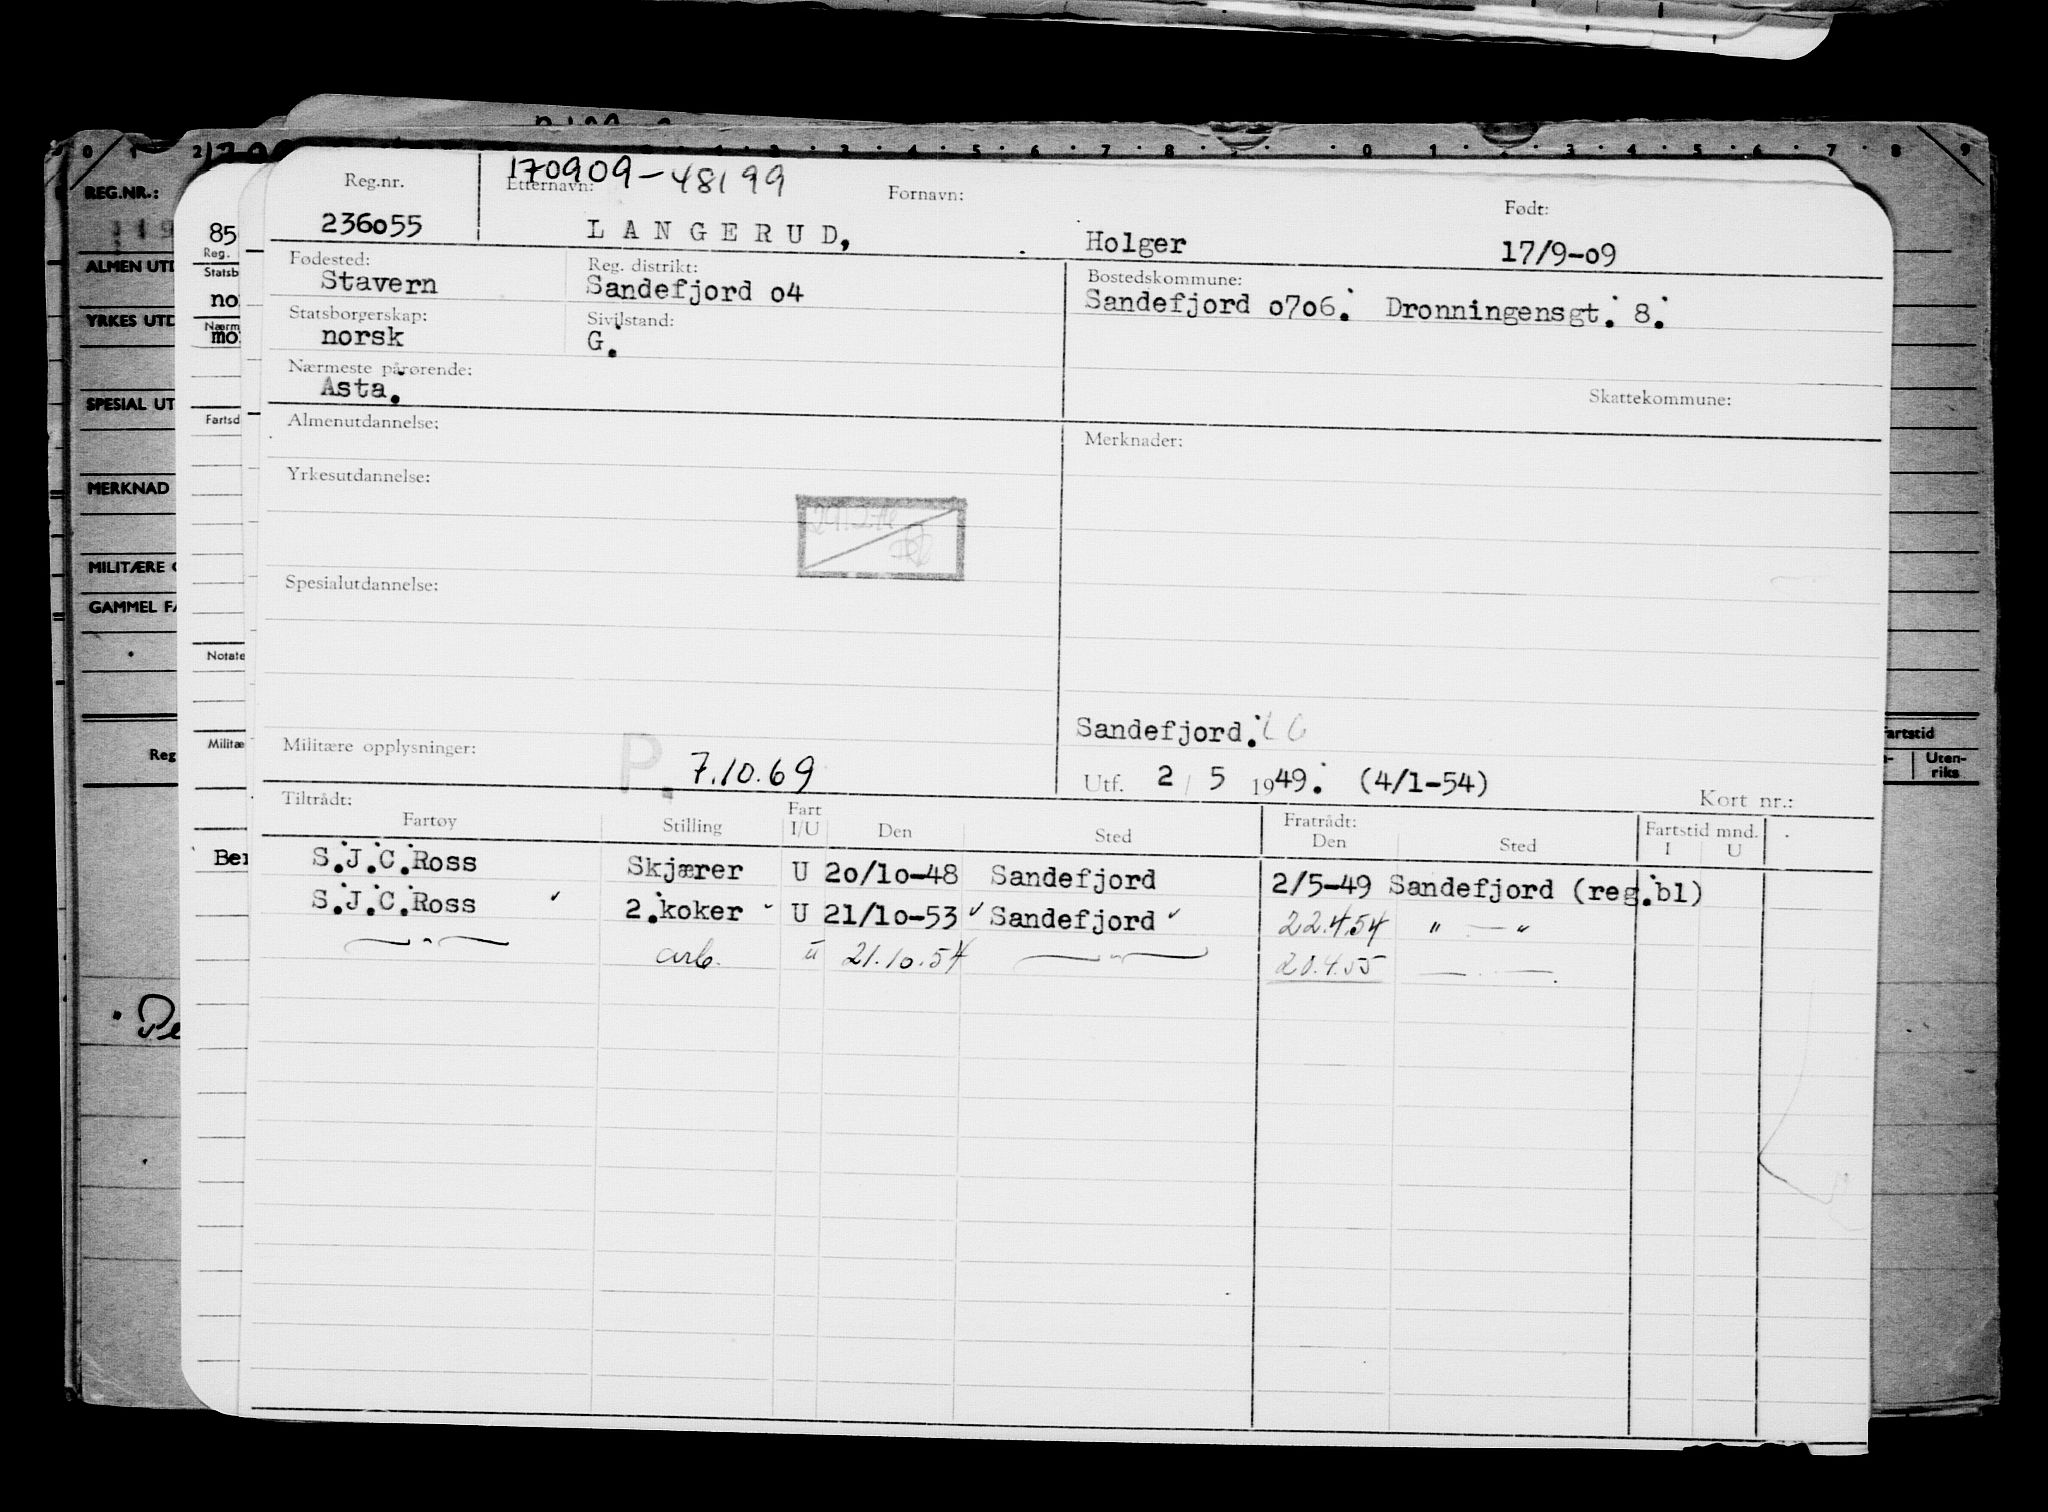 REG.NR.:
ALMEN UTD
YRKES UTD
SPESIAL UT
MERKNAD
MILITÆRE
GAMMEL FA
Reg
85
Reg.
Statsb
no
Nærm
mo
Fartsd
Notate
Militæ
Ber
artstid
Uten-
riks
170909-48199
Reg.nr. Etternavn: Fornavn: Født:
236055 LANGERUD, Holger 17/9-09
Fødested: Reg. distrikt: Bostedskommune:
Stavern Sandefjord 04 Sandefjord 0706. Dronningensgt. 8.
Statsborgerskap: Sivilstand:
norsk G.
Nærmeste pårørende:
Asta. Skattekommune:
Almenutdannelse: Merknader:
Yrkesutdannelse:
Spesialutdannelse:
Sandefjord.
Militære opplysninger: P. 7.10.69
Utf. 2 / 5 1949. (4/1-54) Kort nr.:
Tiltrådt: Fratrådt: Fartstid mnd.
Fartøy Stilling Fart I/U Den Sted Den Sted I U
S.J.C.Ross Skjærer U 20/10-48 Sandefjord 2/5-49 Sandefjord (reg.bl)
S.J.C.Ross 2.koker U 21/10-53 Sandefjord 22.4.54 " — "
— " — arb. U 21.10.54 — " — 20.4.55 — " —